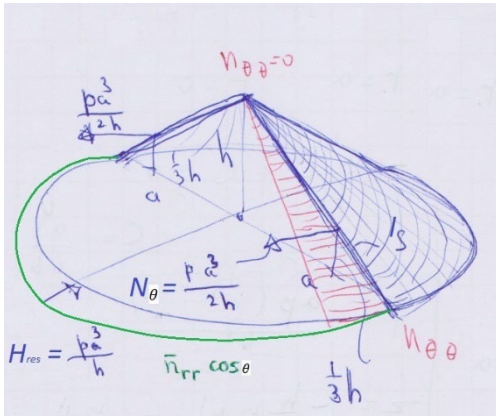 n_θθ=0
pa³
2h
1/3 h
h
a
N_θ = pa³/2h
a
1/3
H_res = pa³/h
n̄_rr cosθ
n_θθ
1/3 h